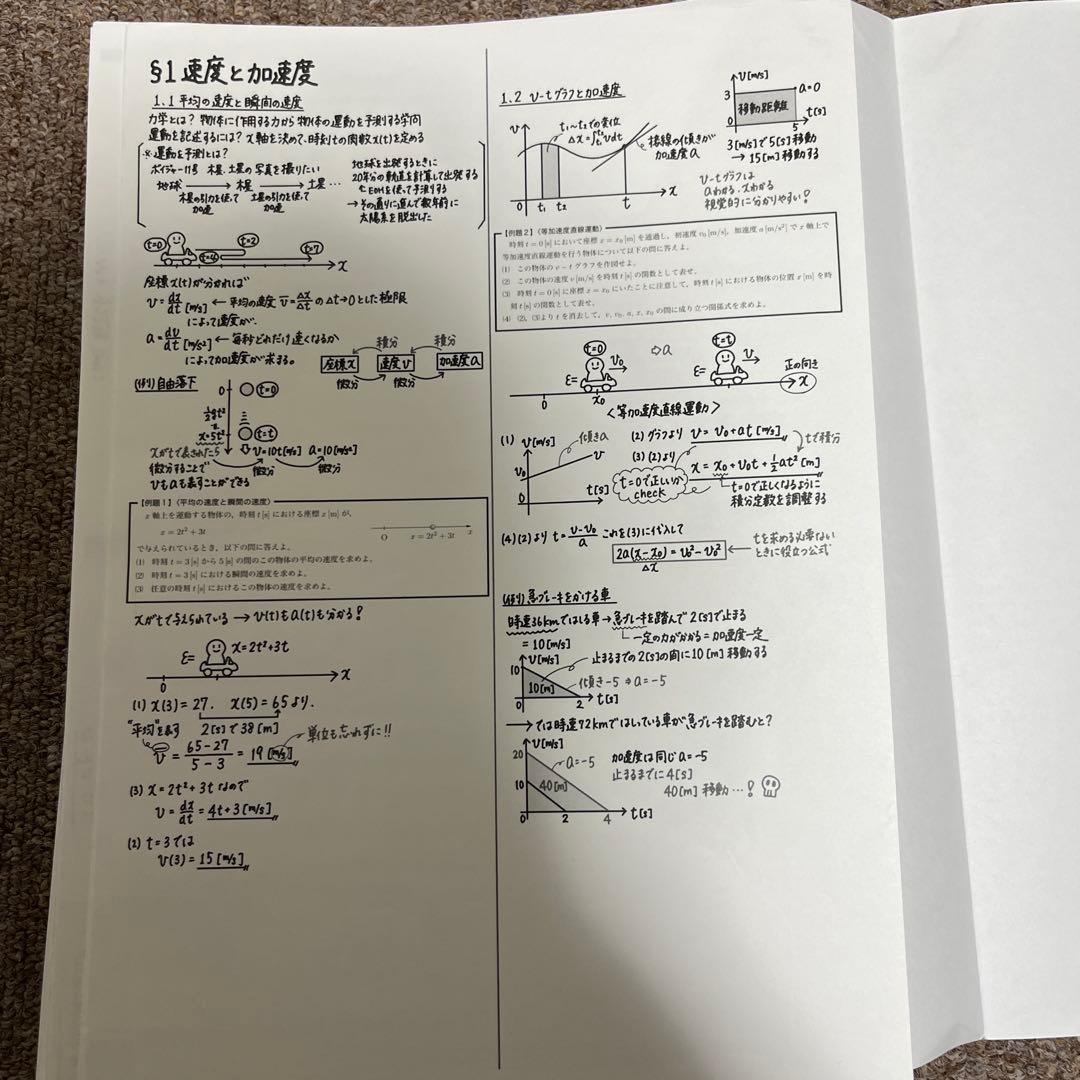 §1 速度と加速度
1.1 平均の速度と瞬間の速度
力学とは? 物体に作用する力から物体の運動を予測する学問
運動を記述するには? x軸を決めて、時刻tの関数x(t)を定める
※運動を予測とは?
ボイジャー11号 木星、土星の写真を撮りたい
地球 → 木星 → 土星 …
木星の引力を使って加速
土星の引力を使って加速
地球を出発するときに
20年分の軌道を計算して出発する
EOMを使って予測する
→ その通りに進んで数年前に
太陽系を脱出した
t=0 t=2 t=4 t=7
x
座標x(t)が分かれば
v = dx/dt [m/s] ← 平均の速度 v̅ = Δx/Δt の Δt→0とした極限
によって速度が、
a = dv/dt [m/s²] ← 毎秒どれだけ速くなるか
によって加速度が求まる。
積分 積分
座標x 速度v 加速度a
微分 微分
(例) 自由落下
0 t=0
½gt²
x=5t² t=t
xがtで表されたら v=10t[m/s] a=10[m/s²]
微分することで 微分 微分
vもaも表すことができる
【例題1】(平均の速度と瞬間の速度)
x軸上を運動する物体の、時刻 t [s] における座標 x [m] が、
x = 2t² + 3t
O x = 2t² + 3t x
で与えられているとき、以下の問に答えよ。
(1) 時刻 t = 3 [s] から 5 [s] の間のこの物体の平均の速度を求めよ。
(2) 時刻 t = 3 [s] における瞬間の速度を求めよ。
(3) 任意の時刻 t [s] におけるこの物体の速度を求めよ。
xがtで与えられている → v(t)もa(t)も分かる!
x=2t²+3t
0 x
(1) x(3) = 27, x(5) = 65 より、
2[s]で38[m]
"平均"を表す
v̅ = (65-27)/(5-3) = 19 [m/s]
単位も忘れずに!!
(3) x = 2t²+3t なので
v = dx/dt = 4t+3 [m/s]
(2) t=3では
v(3) = 15 [m/s]
1.2 v-tグラフと加速度
v
t₁~t₂での変位
Δx = ∫t₁t₂ v dt
接線の傾きが
加速度a
t₁ t₂ t x
v[m/s]
3 a=0
移動距離
0 5 t[s]
3[m/s]で5[s]移動
→ 15[m]移動する
v-tグラフは
aわかる、xわかる
視覚的に分かりやすい!
【例題2】(等加速度直線運動)
時刻 t = 0 [s] において座標 x = x₀ [m] を通過し、初速度 v₀ [m/s]、加速度 a [m/s²] で x 軸上で
等加速度直線運動を行う物体について以下の問に答えよ。
(1) この物体の v − t グラフを作図せよ。
(2) この物体の速度 v [m/s] を時刻 t [s] の関数として表せ。
(3) 時刻 t = 0 [s] に座標 x = x₀ にいたことに注意して、時刻 t [s] における物体の位置 x [m] を時
刻 t [s] の関数として表せ。
(4) (2)、(3)より t を消去して、v, v₀, a, x, x₀ の間に成り立つ関係式を求めよ。
t=0 v₀ ⇨a t=t v 正の向き
0 x₀ x
<等加速度直線運動>
(1) v[m/s] 傾きa
v₀ v
0 t[s]
(2) グラフより v = v₀+at [m/s]
tで積分
(3) (2)より
x = x₀+v₀t+½at² [m]
t=0で正しいか
check
t=0で正しくなるように
積分定数を調整する
(4) (2)より t = (v-v₀)/a これを(3)に代入して
2a(x-x₀) = v²-v₀²
Δx
tを求める必要ない
ときに役立つ公式
(例) 急ブレーキをかける車
時速36kmではしる車→急ブレーキを踏んで2[s]で止まる
= 10[m/s] 一定の力がかかる=加速度一定
v[m/s] 止まるまでの2[s]の間に10[m]移動する
10 傾き-5 ⇒ a=-5
10[m]
0 2 t[s]
→ では時速72kmではしっている車が急ブレーキを踏むと?
v[m/s]
20 a=-5
10 40[m]
0 2 4 t[s]
加速度は同じ a=-5
止まるまでに4[s]
40[m] 移動 …!